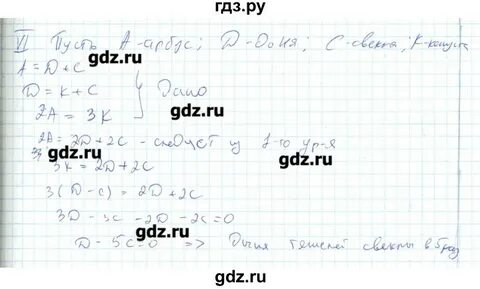 гдз.ру
VI Пусть А-арбуз; D-Dыня; С-свекла; К-капуста
A = D + C
D = K + C
2A = 3K
} Дано
2A = 2D + 2C - следует из 1-го ур-я
3K = 2D + 2C
3(D-C) = 2D + 2C
3D - 3C - 2D - 2C = 0
D - 5C = 0 => Дыня тяжелей свеклы в 5 раз
gdz.ru
gdz.ru
gdz.ru
gdz.ru
gdz.ru
gdz.ru
gdz.ru
gdz.ru